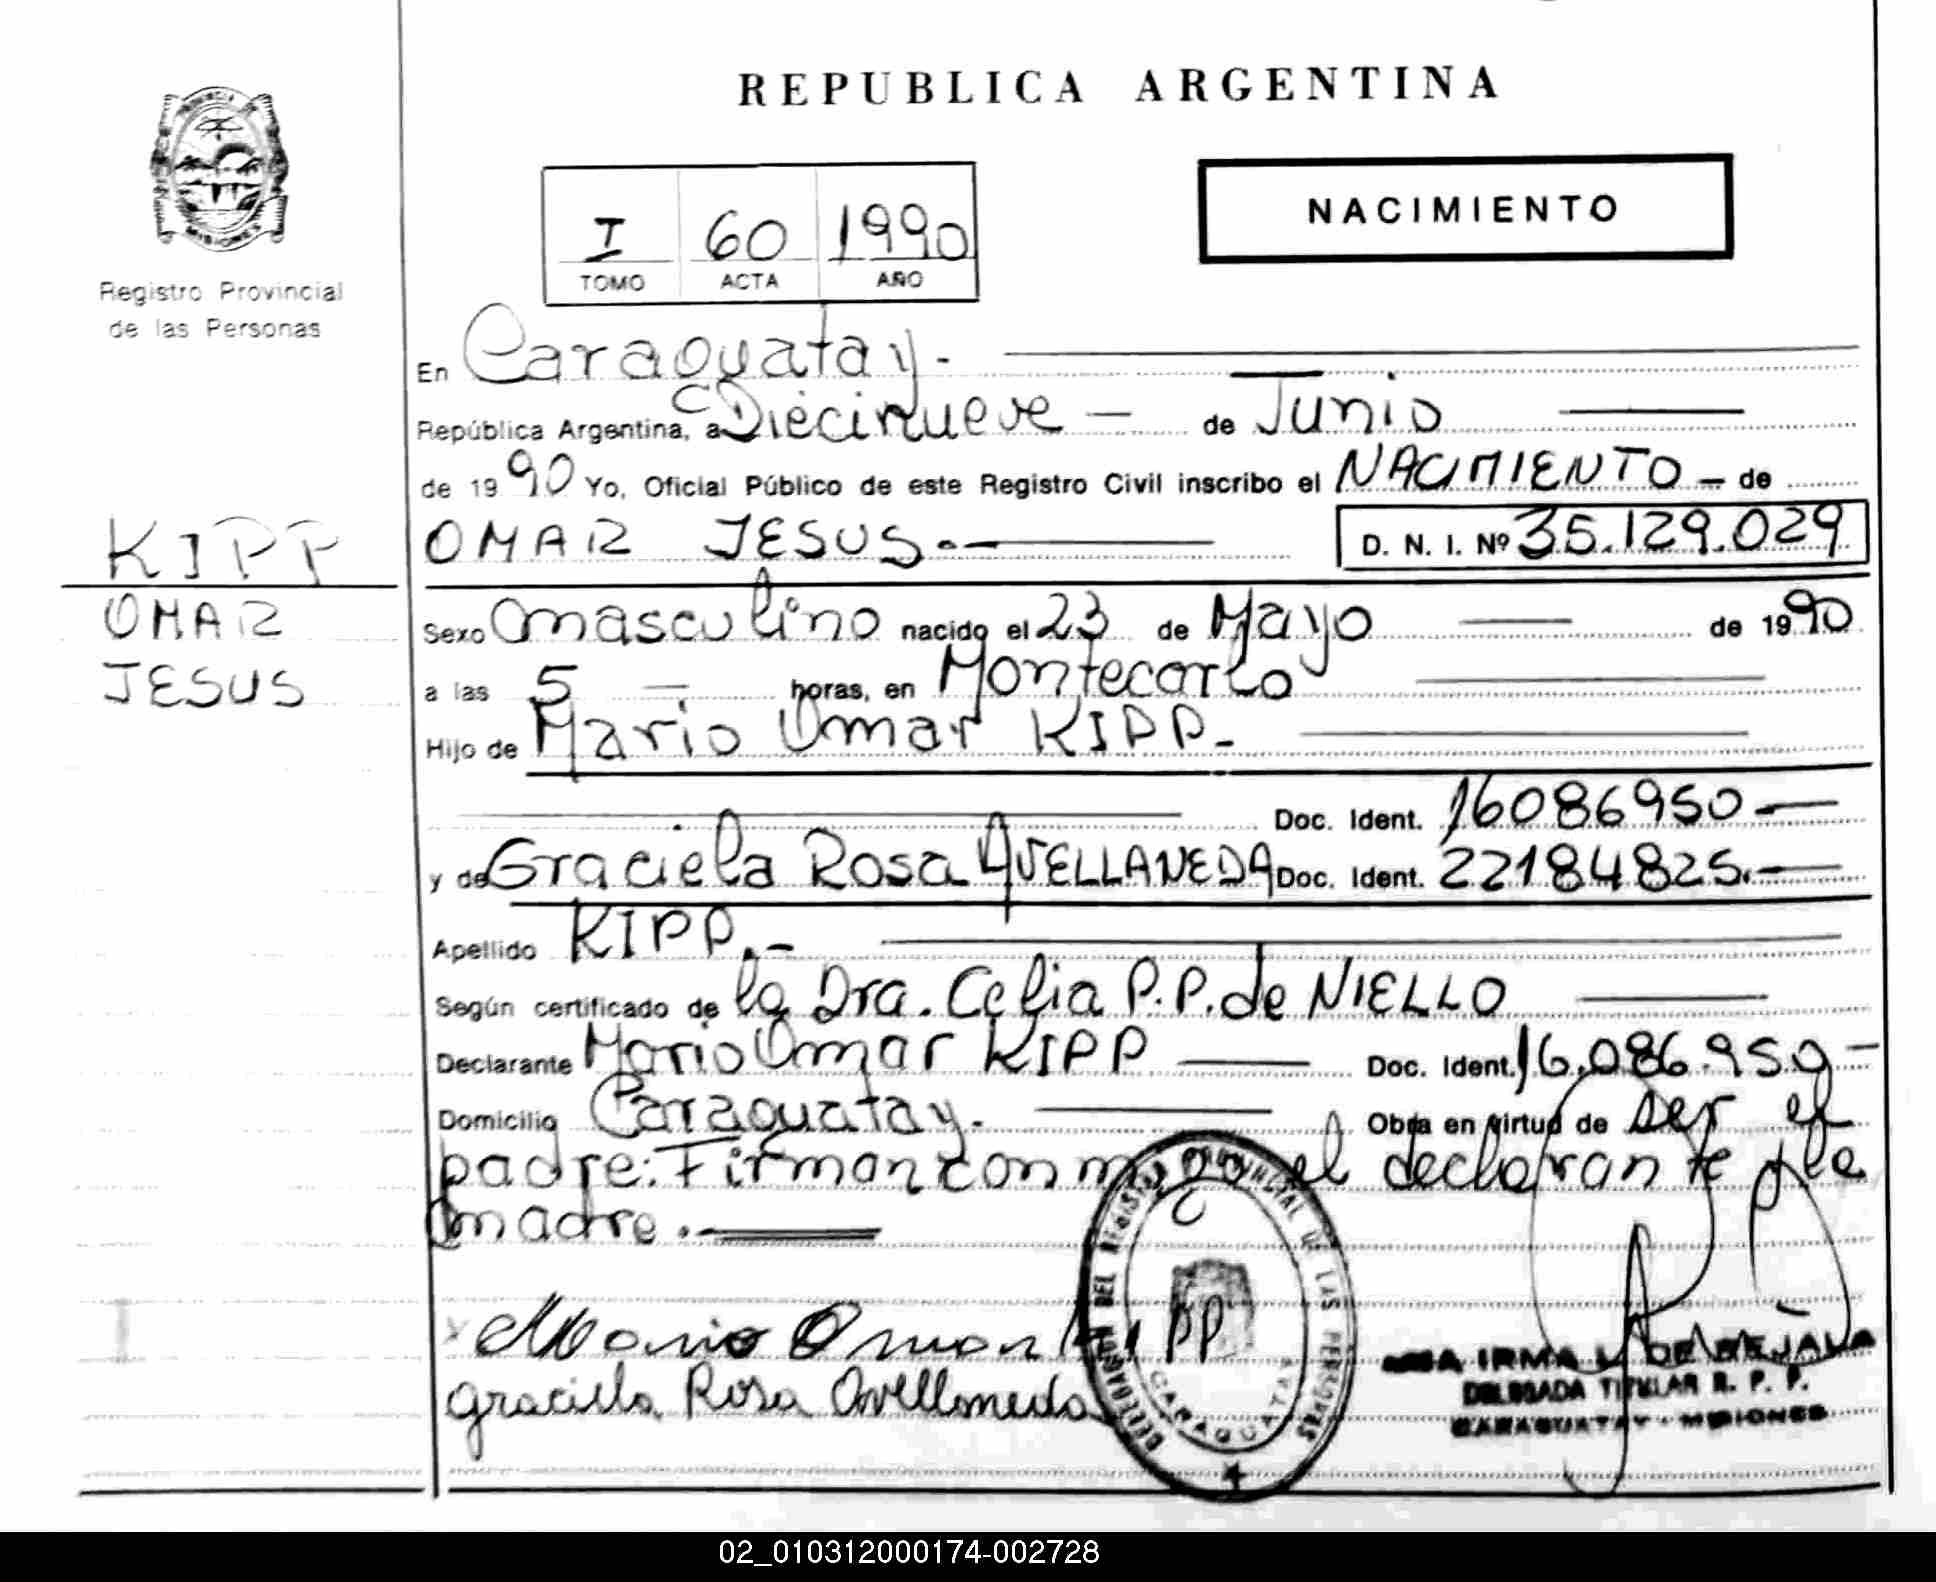 REPUBLICA ARGENTINA
PROVINCIA DE
MISIONES
Registro Provincial
de las Personas
I 60 1990
TOMO ACTA AÑO
NACIMIENTO
En Caraguatay.-
República Argentina, a Diecinueve — de Junio
de 1990 Yo, Oficial Público de este Registro Civil inscribo el NACIMIENTO — de
KIPP
OMAR JESUS.—
D. N. I. Nº 35.129.029
OMAR
JESUS
Sexo masculino nacido el 23 de Mayo — de 1990
a las 5 — horas, en Montecarlo
Hijo de Mario Omar KIPP.-
Doc. Ident. 16086950.—
y de Graciela Rosa AVELLANEDA Doc. Ident. 22184825.—
Apellido KIPP.-
Según certificado de la Dra. Celia P.P. de NIELLO
Declarante Mario Omar KIPP — Doc. Ident. 16.086.950-
Domicilio Caraguatay.- Obra en virtud de ser el
padre: Firman con migo el declarante y la
madre.
x Mario Omar Kipp
Graciela Rosa Avellaneda
DELEGACION DEL REGISTRO PROVINCIAL DE LAS PERSONAS
CARAGUATAY
IRMA L. DE BEJALA
DELEGADA TITULAR R. P. P.
CARAGUATAY - MISIONES
02_010312000174-002728